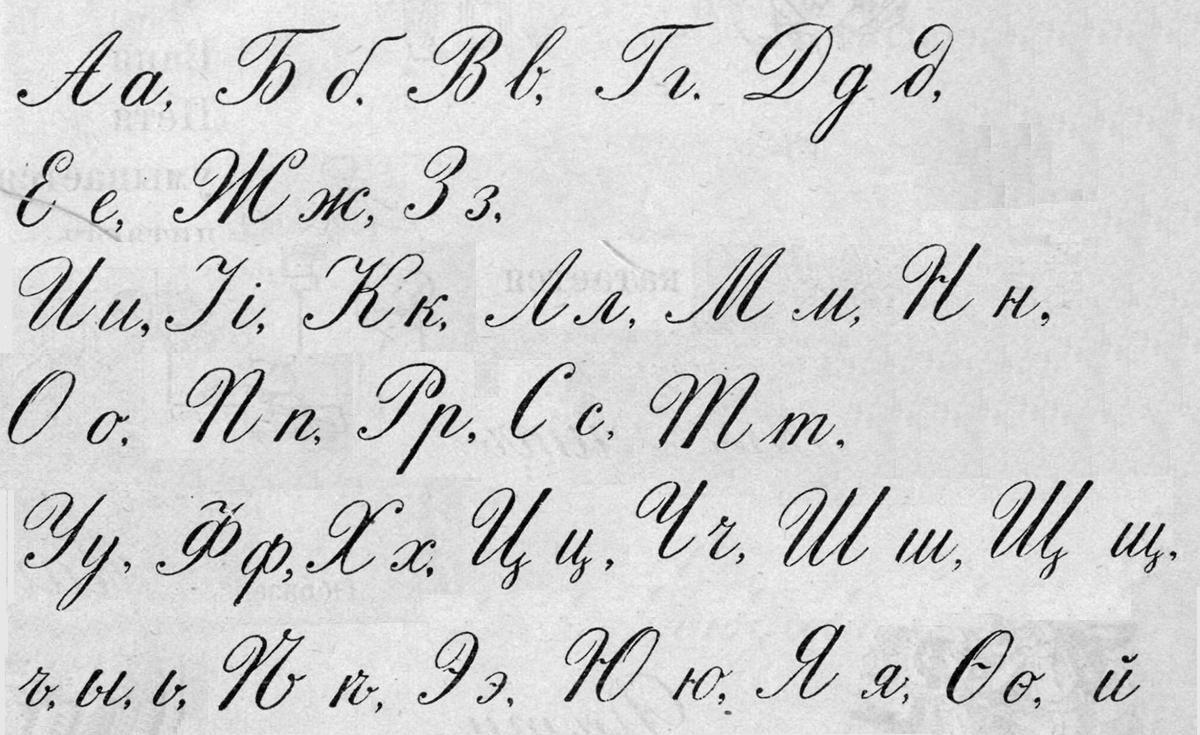 Аа, Бб. Вв, Гг. Дд д,
Ее, Жж, Зз.
Ии, Іі, Кк, Лл, Мм, Нн,
Оо. Пп, Рр, Сс, Тт.
Уу, Фф, Хх, Цц, Чч, Шш, Щщ,
ъ, ы, ь, Ѣѣ, Ээ, Юю, Яя, Ѳѳ, й